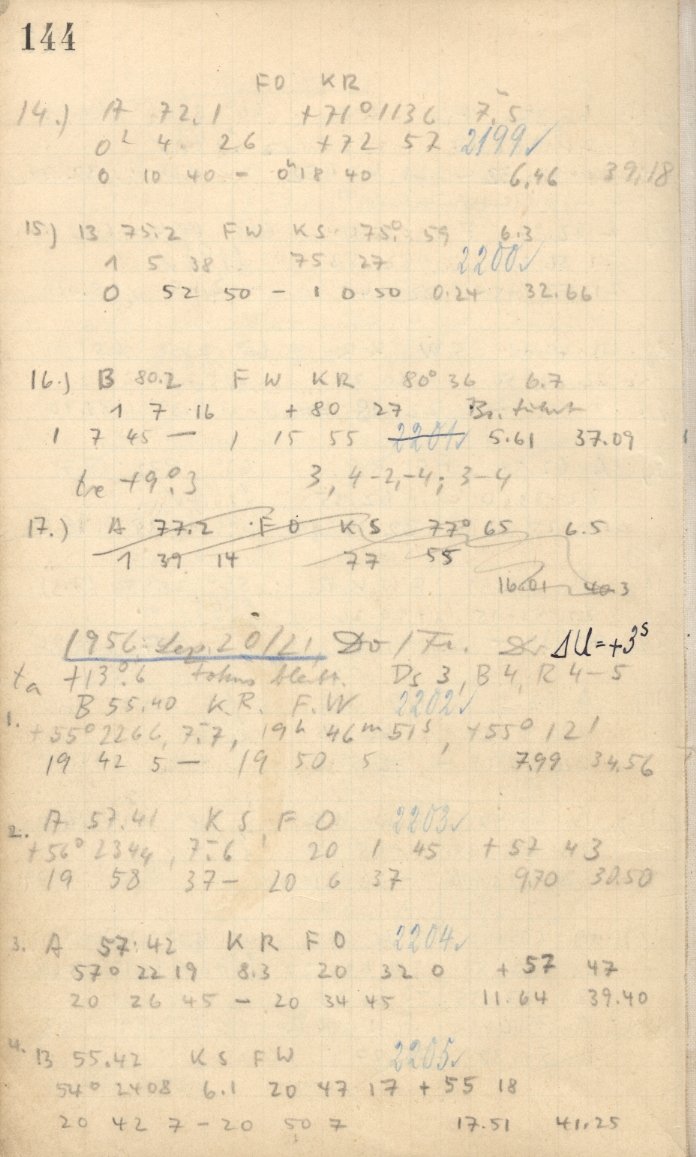 144
FO KR
14.) A 72.1 +71° 1136 7.5
0h 4 26 +72 57 2199✓
0 10 40 – 0h 18 40 6.46 39.18
15) B 75.2 FW KS 75° 59 6.3
1 5 38 75 27 2200✓
0 52 50 – 1 0 50 0.24 32.66
16.) B 80.2 FW KR 80° 36 6.7
1 7 16 +80 27
1 7 45 – 1 15 55 2201✓ 5.61 37.09
te +9°.3 3, 4-2,-4; 3-4
17.) A 77.2 FO KS 77° 65 6.5
1 39 14 77 55
16.01 40.3
1956 Sep. 20/21, Do/Fr. Dr ΔU=+3s
ta +13°.6 Ds 3, B 4, R 4-5
B 55.40 KR. F.W 2202✓
1. +55° 2266, 7.7, 19h 46m 51s, +55° 12'
19 42 5 – 19 50 5 7.99 34.56
2. A 57.41 KS FO 2203✓
+56° 2344, 7.6 20 1 45 +57 43
19 58 37 – 20 6 37 9.70 30.50
3. A 57.42 KR FO 2204✓
57° 2219 8.3 20 32 0 +57 47
20 26 45 – 20 34 45 11.64 39.40
4. B 55.42 KS FW 2205✓
54° 2408 6.1 20 47 17 +55 18
20 42 7 – 20 50 7 17.51 41.25